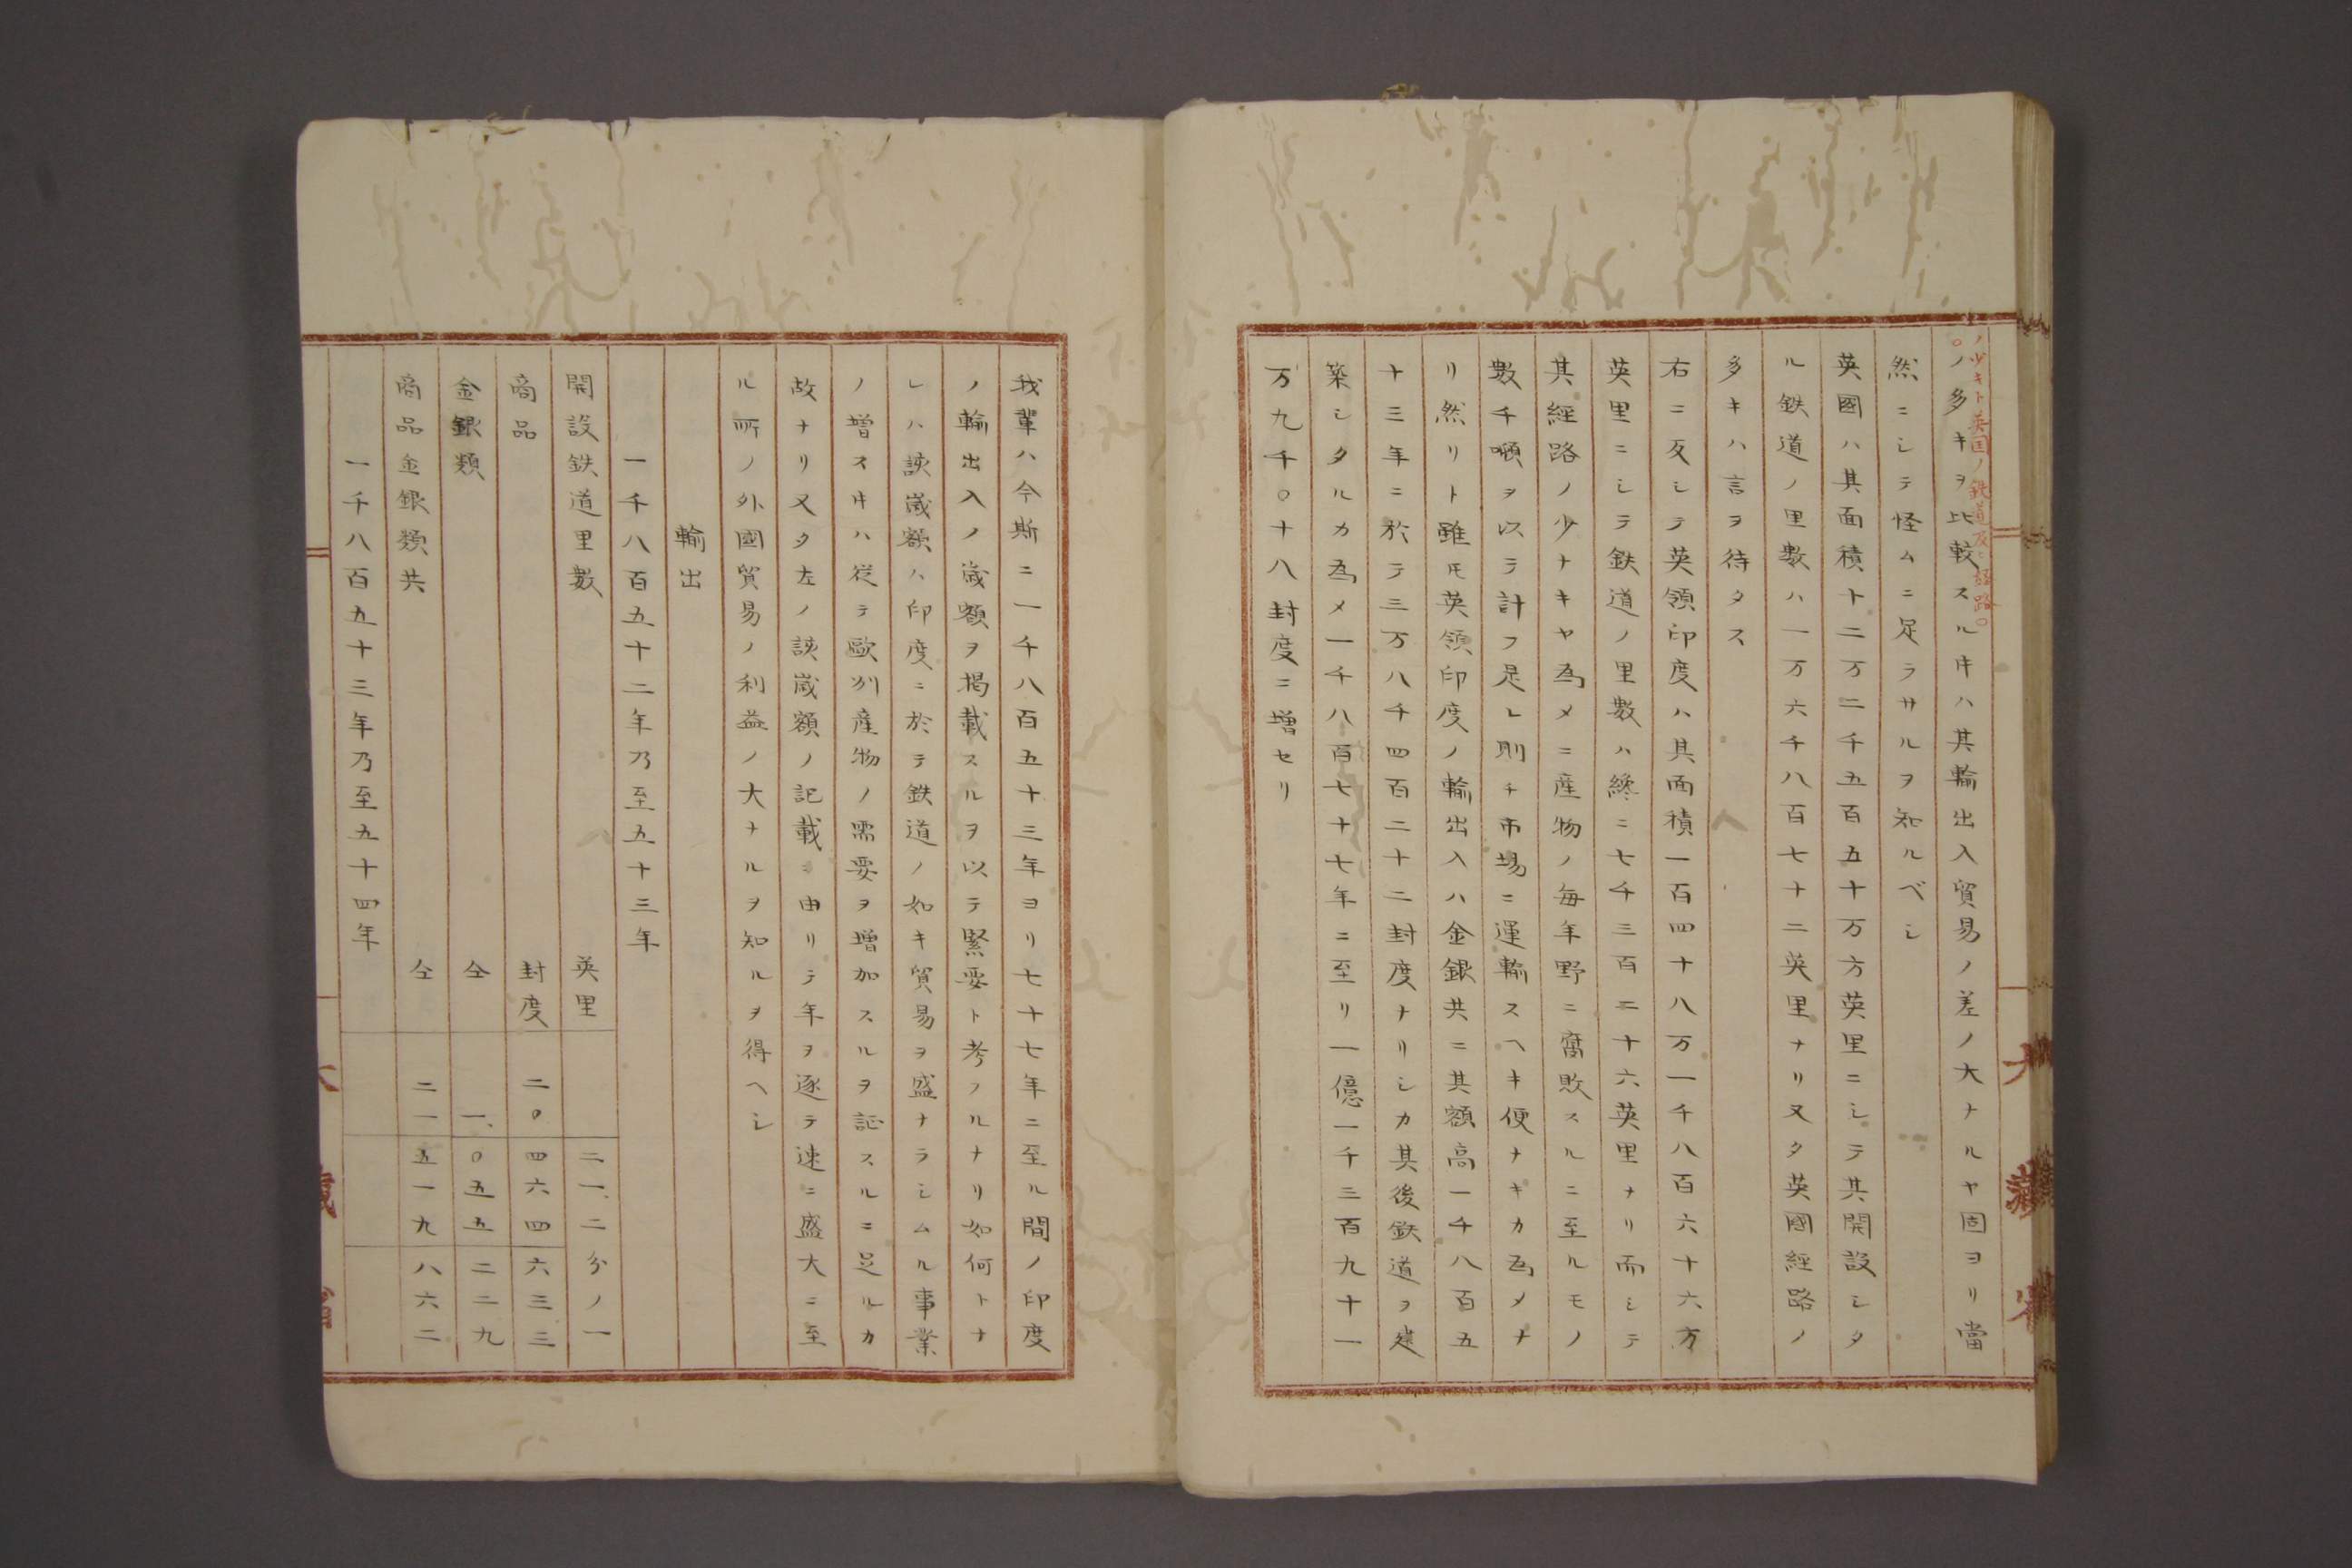 ノ少キト英国ノ鉄道及ニ経路
ノ多キヲ比較スル廾ハ其輸出入貿易ノ差ノ大ナルヤ固ヨリ當
然ニシテ怪ムニ足ラサルヲ知ルベシ
英國ハ其面積十二万二千五百五十万方英里ニシテ其開設シタ
ル鉄道ノ里數ハ一万六千八百七十二英里ナリ又タ英國經路ノ
多キハ言ヲ待タス
右ニ反シテ英領印度ハ其面積一百四十八万一千八百六十六方
英里ニシテ鉄道ノ里數ハ終ニ七千三百二十六英里ナリ而シテ
其經路ノ少ナキヤ為メニ産物ノ毎年野ニ腐敗スルニ至ルモノ
數千噸ヲ以テ計フ是レ則チ市場ニ運輸スヘキ便ナキカ為メナ
リ然リト雖モ英領印度ノ輸出入ハ金銀共ニ其額高一千八百五
十三年ニ於テ三万八千四百二十二封度ナリシカ其後鉄道ヲ建
築シタルカ為メ一千八百七十七年ニ至リ一億一千三百九十一
万九千〇十八封度ニ増セリ
大蔵省
我輩ハ今斯ニ一千八百五十三年ヨリ七十七年ニ至ル間ノ印度
ノ輸出入ノ歳額ヲ掲載スルヲ以テ緊要ト考フルナリ如何トナ
レハ該歳額ハ印度ニ於テ鉄道ノ如キ貿易ヲ盛ナラシムル事業
ノ増ス廾ハ従テ歐州産物ノ需要ヲ増加スルヲ証スルニ足ルカ
故ナリ又タ左ノ該歳額ノ記載ニ由リテ年ヲ逐テ速ニ盛大ニ至
ル所ノ外國貿易ノ利益ノ大ナルヲ知ルヲ得ヘシ
輸出
一千八百五十二年乃至五十三年
開設鉄道里數 英里 二一、二分ノ一
商品 封度 二〇四六四六三三
金銀類 仝 一、〇五五二二九
商品金銀類共 仝 二一五一九八六二
一千八百五十三年乃至五十四年
大蔵省